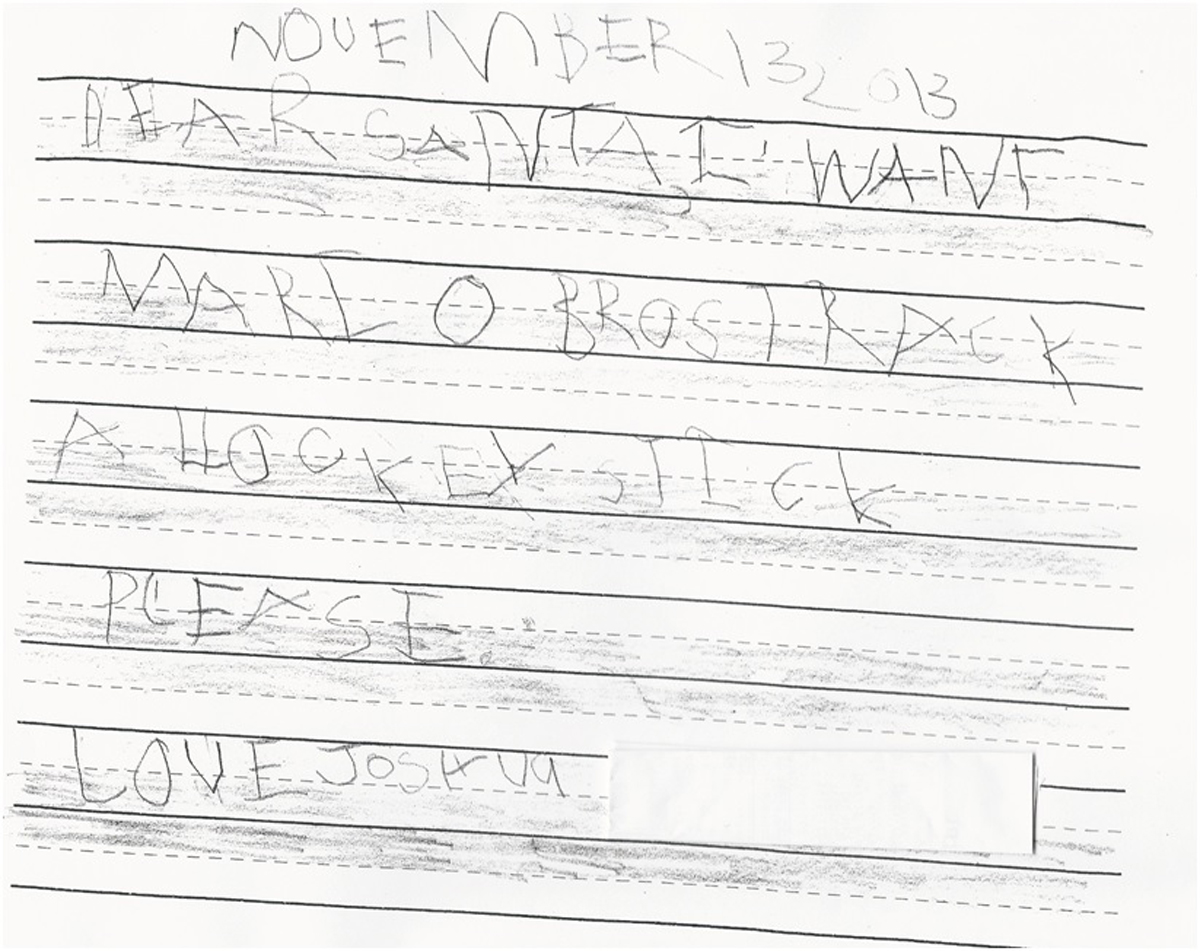 NOVEMBER 13 2013
DEAR SaNTA I WANT
MARL O BROS TRACK
A HOCKEY STICK
PLEASE.
LOVE JOSHUa